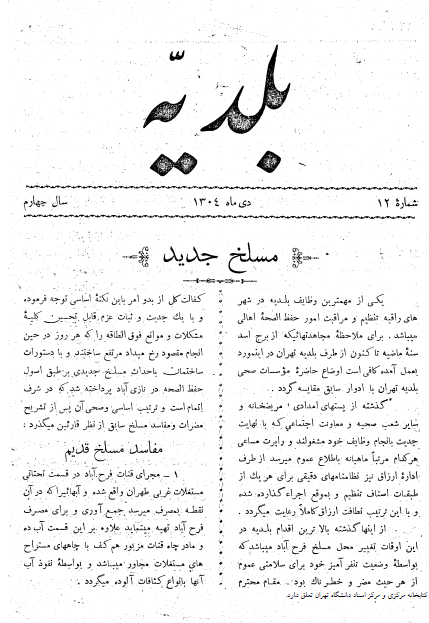 بلدیّه
شمارهٔ ۱۲
دی ماه ۱۳۰۴
سال چهارم
مسلخ جدید
یکی از مهمترین وظایف بلدیه در شهر
های راقیه تنظیم و مراقبت امور حفظ الصحهٔ اهالی
میباشد. برای ملاحظهٔ مجاهدتهائیکه از برج اسد
سنهٔ ماضیه تا کنون از طرف بلدیه تهران در اینمورد
بعمل آمده کافی است اوضاع حاضرهٔ مؤسسات صحی
بلدیه تهران با ادوار سابق مقایسه گردد.
گذشته از پستهای امدادی، مریضخانه و
سایر شعب صحیه و معاونت اجتماعی که با نهایت
جدیت بانجام وظایف خود مشغولند و راپرت مساعی
هر کدام مرتباً ماهیانه باطلاع عموم میرسد از طرف
ادارهٔ ارزاق نیز نظامنامهای دقیقی برای هر یک از
طبقات اصناف تنظیم و بموقع اجراء گذارده شده
و با این ترتیب نظافت ارزاق کاملاً رعایت میگردد.
از اینها گذشته بالا ترین اقدام بلدیه در
این اوقات تغییر محل مسلخ فرح آباد میباشد که
بواسطهٔ وضعیت تنفر آمیز خود برای سلامتی عموم
از هر حیث مضر و خطر ناک بود. مقام محترم
کفالت کل از بدو امر باین نکتهٔ اساسی توجه فرموده
و با یک جدیت و ثبات عزم قابل تحسین کلیهٔ
مشکلات و موانع فوق الطاقه را که هر روز در حین
انجام مقصود رخ میداد مرتفع ساختند و با دستورات
ساختمان باحداث مسلخ جدیدی بر طبق اصول
حفظ الصحه در نازی آباد پرداخته شد که در شرف
اتمام است و ترتیب اساسی وصحی آن پس از تشریح
مضرات ومفاسد مسلخ سابق از نظر قارئین میگذرد:
مفاسد مسلخ قدیم
۱ - مجرای قنات فرح آباد در قسمت تحتانی
مستغلات غربی طهران واقع شده و آبهائیرا که در آن
نقطه بمصرف میرسد جمع آوری و برای مصرف
فرح آباد تهیه مینماید علاوه بر این قسمت آب ده
و مادر چاه قنات مزبور هم کف با چاههای مستراح
های مستغلات مجاور میباشد و بواسطهٔ نفوذ آب
آنها بانواع کثافات آلوده میگردد.
کتابخانه مرکزی و مرکز اسناد دانشگاه تهران تعلق دارد.